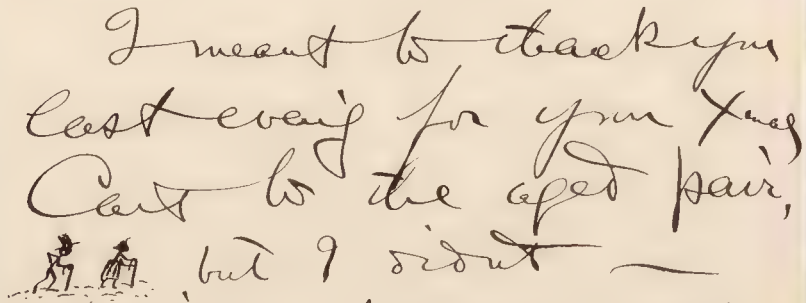 I meant to thank you
last evenig for your Xmas
Card to the aged pair,
but I didnt —